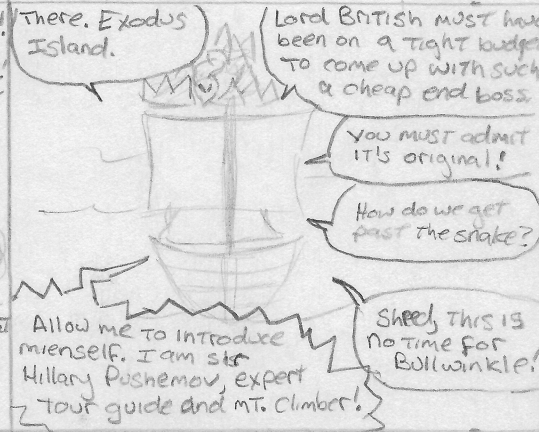 There. Exodus
Island.
Lord British must have
been on a tight budget
to come up with such
a cheap end boss.
You must admit
it's original!
How do we get
past the snake?
Allow me to introduce
mienself. I am sir
Hillary Pushemov, expert
tour guide and mt. climber!
this is
no time for
Bullwinkle!